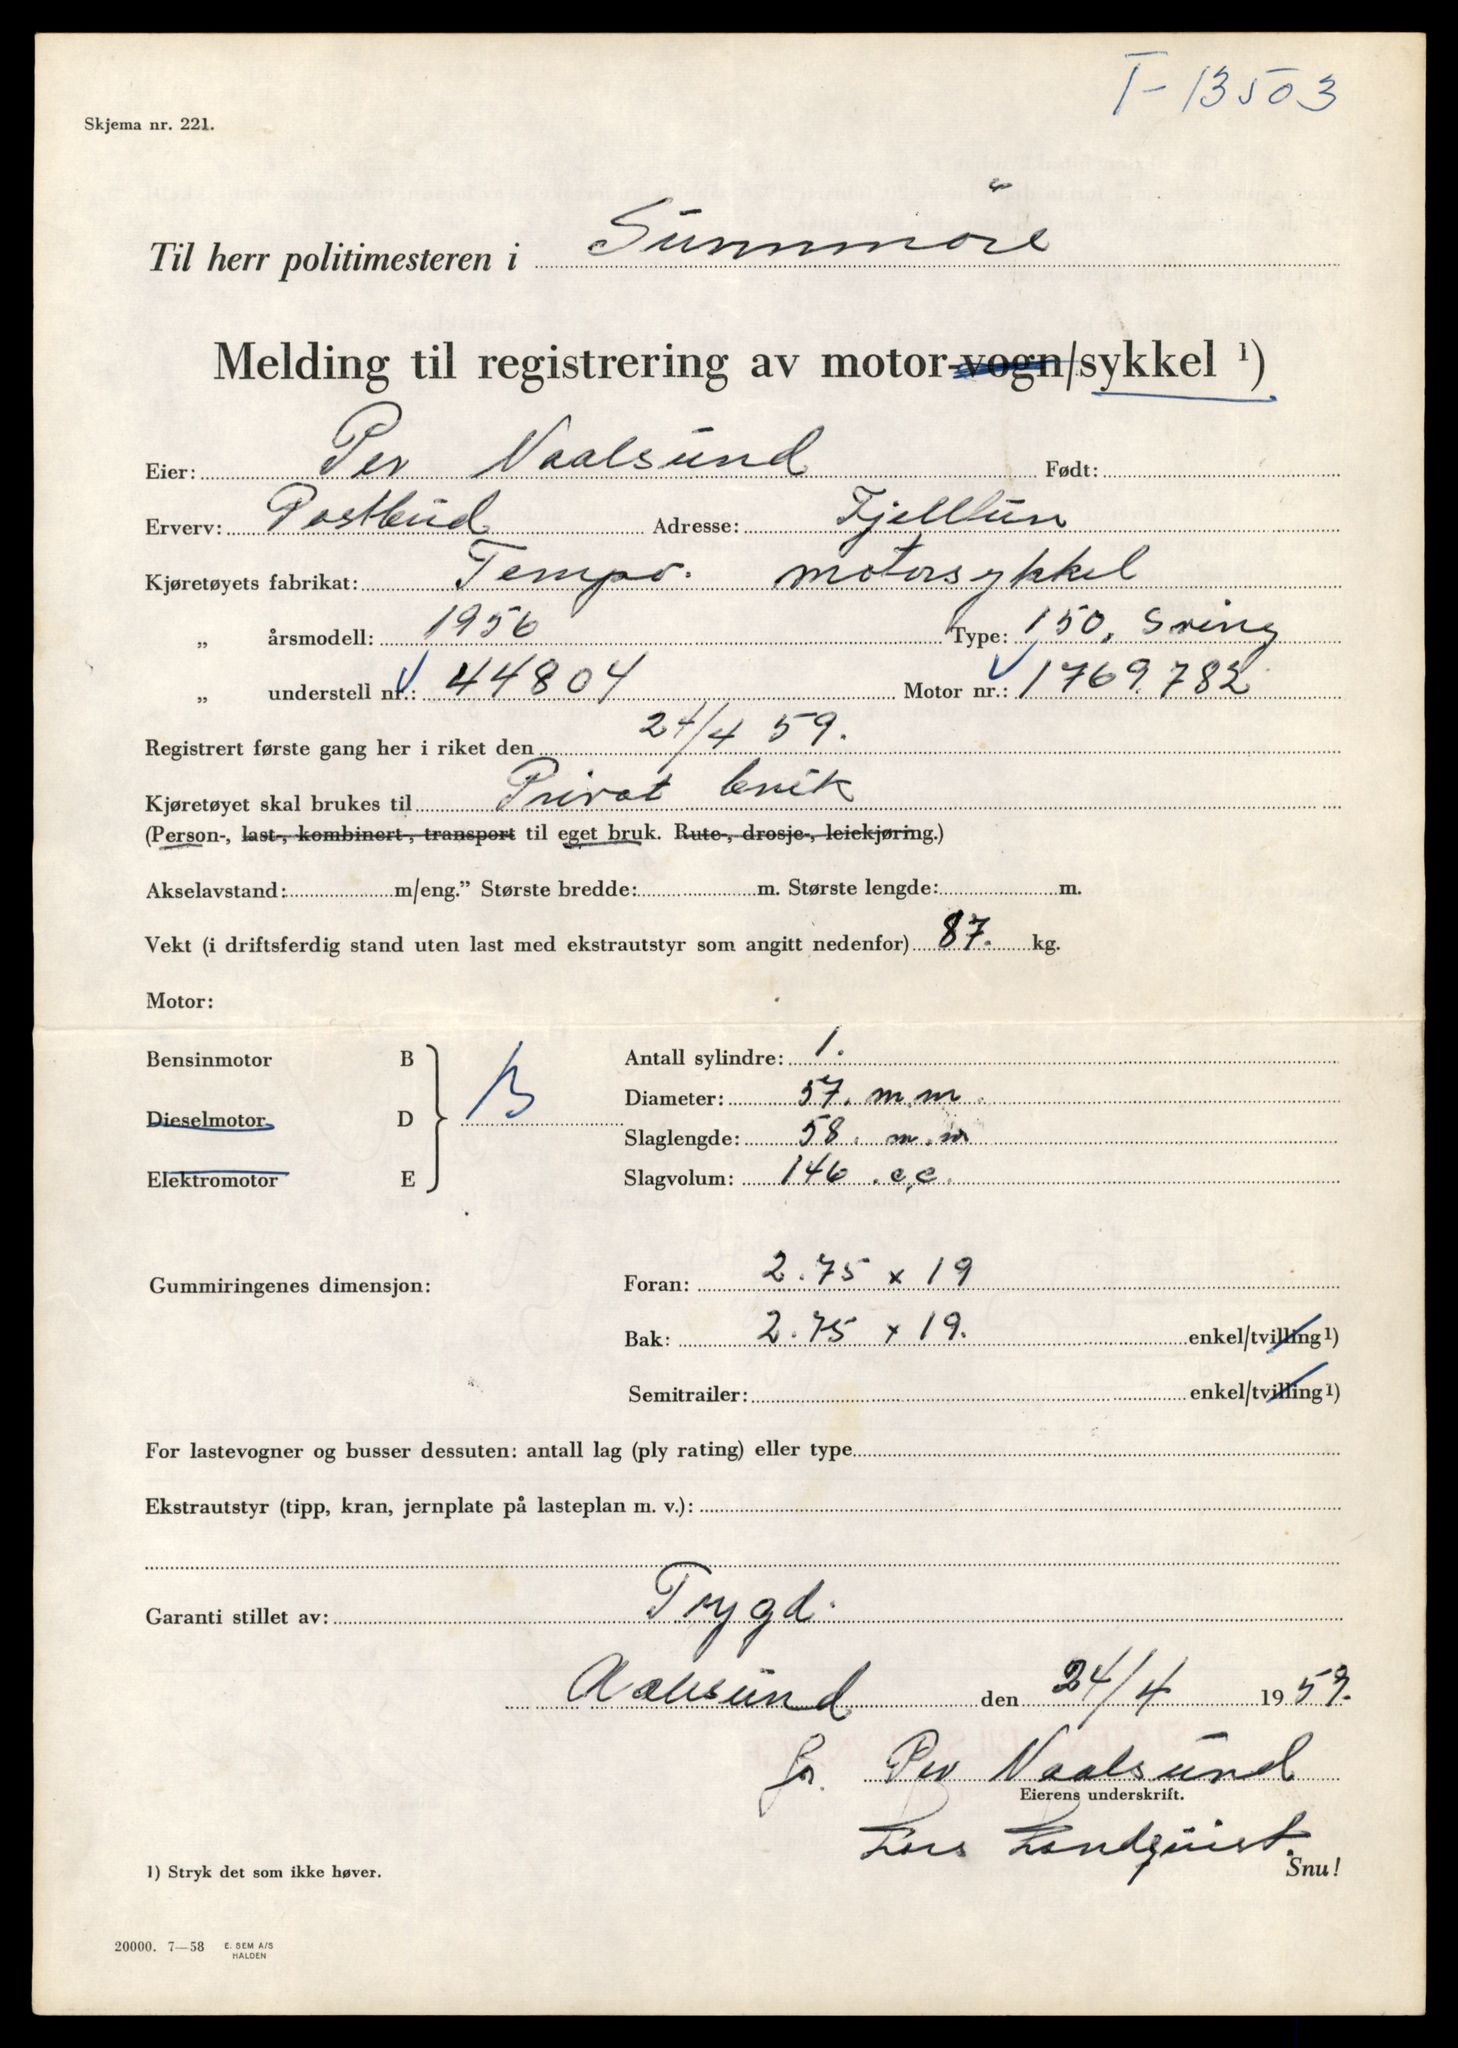 T-13503
Skjema nr. 221.
Til herr politimesteren i Sunnmöre
Melding til registrering av motor-vogn/sykkel ¹)
Eier: Per Naalsund Født:
Erverv: Postbud Adresse: Fjelltun
Kjøretøyets fabrikat: Tempo. motorsykkel
„ årsmodell: 1956 Type: 150. Swing
„ understell nr.: 44804 Motor nr.: 1769.782
Registrert første gang her i riket den 24/4 59.
Kjøretøyet skal brukes til Privat bruk
(Person-, last-, kombinert-, transport til eget bruk. Rute-, drosje-, leiekjøring.)
Akselavstand: m/eng.” Største bredde: m. Største lengde: m.
Vekt (i driftsferdig stand uten last med ekstrautstyr som angitt nedenfor) 87. kg.
Motor:
Bensinmotor B Antall sylindre: 1.
Diameter: 57. m.m.
Dieselmotor D B
Slaglengde: 58. m.m
Elektromotor E Slagvolum: 146 .c.c.
Gummiringenes dimensjon: Foran: 2.75 x 19
Bak: 2.75 x 19. enkel/tvilling ¹)
Semitrailer: enkel/tvilling ¹)
For lastevogner og busser dessuten: antall lag (ply rating) eller type
Ekstrautstyr (tipp, kran, jernplate på lasteplan m. v.):
Garanti stillet av: Trygd.
Aalesund den 24/4 1959.
for. Per Naalsund
Eierens underskrift.
Lars Landquist.
1) Stryk det som ikke høver. Snu!
20000. 7—58 E. SEM A/S
HALDEN